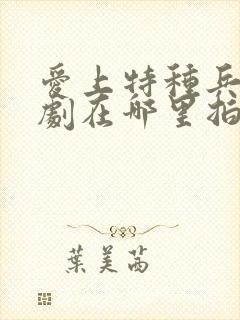 愛上特種兵
劇在哪里拍
葉美茜